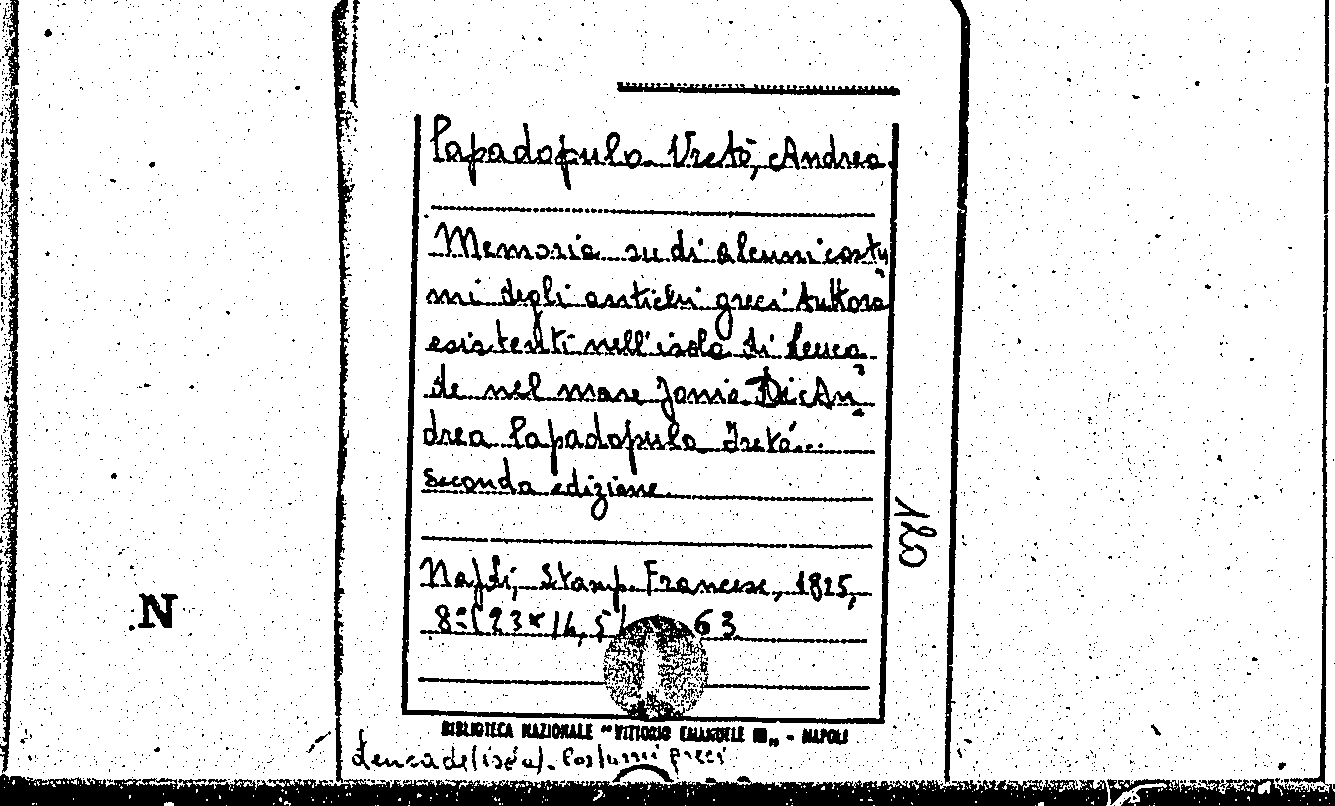 Papadopulo Vretò, Andrea.
Memoria su di alcuni costu
mi degli antichi greci tuttora
esistenti nell'isola di Leuca
de nel mare Jonio. Di An
drea Papadopulo Vretò...
Seconda edizione.
Napoli, Stamp. Francese, 1825,
8° (23x16,5) 63
180
N
BIBLIOTECA NAZIONALE "VITTORIO EMANUELE III" - NAPOLI
Leucade (isola). Costumi greci